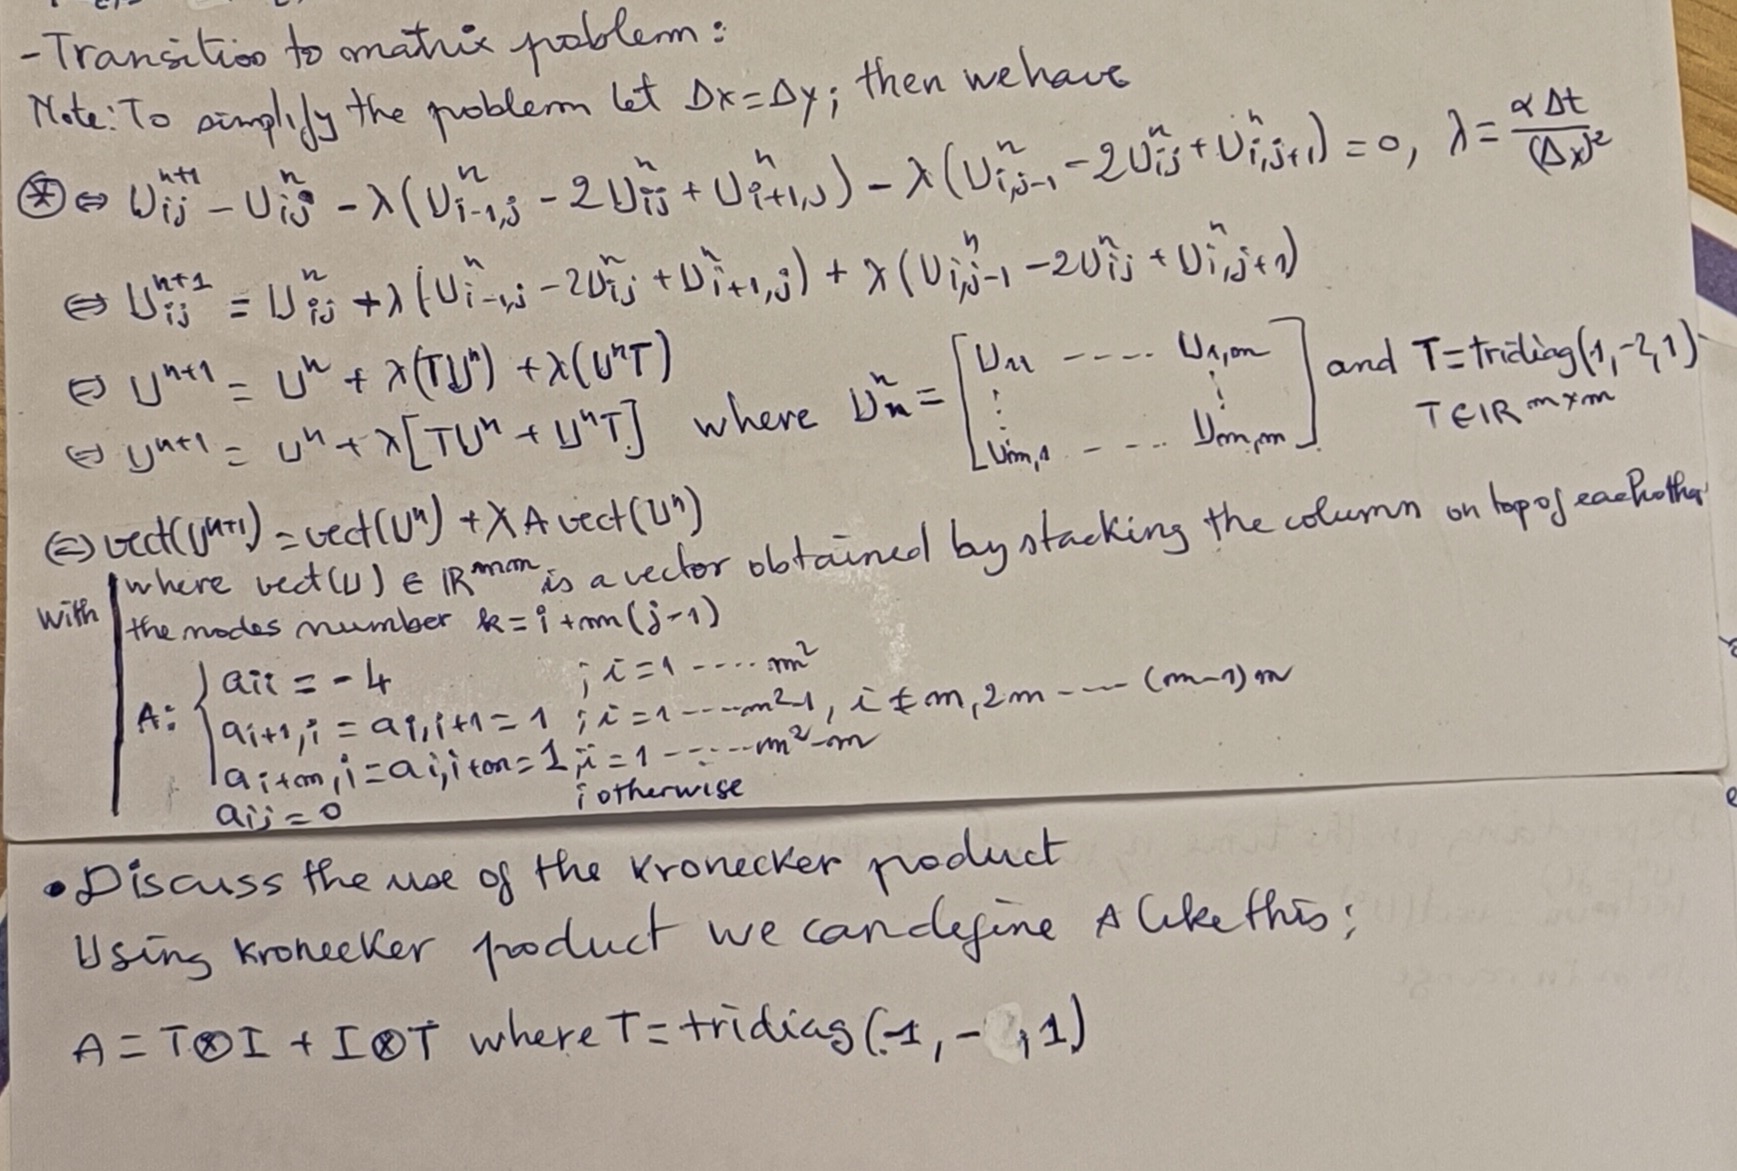 - Transition to matrix problem :
Note: To simplify the problem let Δx=Δy; then we have
⊛ ⇔ U_{ij}^{n+1} - U_{ij}^{n} - λ(U_{i-1,j}^{n} - 2U_{ij}^{n} + U_{i+1,j}^{n}) - λ(U_{i,j-1}^{n} - 2U_{ij}^{n} + U_{i,j+1}^{n}) = 0, λ = \frac{αΔt}{(Δx)^2}
⇔ U_{ij}^{n+1} = U_{ij}^{n} + λ(U_{i-1,j}^{n} - 2U_{ij}^{n} + U_{i+1,j}^{n}) + λ(U_{i,j-1}^{n} - 2U_{ij}^{n} + U_{i,j+1}^{n})
⇔ U^{n+1} = U^n + λ(TU^n) + λ(U^nT)
⇔ U^{n+1} = U^n + λ[TU^n + U^nT] where U_n^n = [U_{11} ---- U_{1,m} ⋮ ⋮ U_{m,1} - - - U_{m,m}] and T = tridiag(1,-2,1)
T∈ℝ^{m×m}
⇔ vect(U^{n+1}) = vect(U^n) + λ A vect(U^n)
with | where vect(U) ∈ ℝ^{m·m} is a vector obtained by stacking the column on top of each other
the nodes number k = i + m(j-1)
A: { a_{ii} = -4 ; i = 1 ---- m^2
a_{i+1,i} = a_{i,i+1} = 1 ; i = 1 ---- m^2-1, i ≠ m, 2m ---- (m-1)m
a_{i+m,i} = a_{i,i+m} = 1 ; i = 1 ----- m^2-m
a_{ij} = 0 ; otherwise
• Discuss the use of the Kronecker product
Using Kronecker product we can define A like this;
A = T⊗I + I⊗T where T = tridiag(1, - , 1)